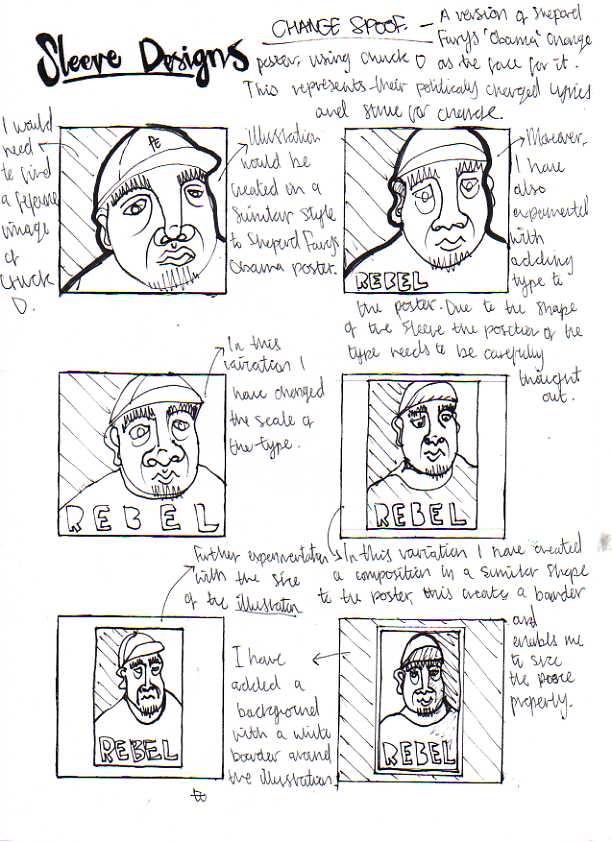 Sleeve Designs
CHANGE SPOOF. - A version of Sheperd
Fairys 'Obama' Change
poster, using Chuck D as the face for it.
This represents their politically charged lyrics
and strive for change.
I would
need
to find
a reference
image
of
Chuck
D.
PE
illustration
would be
created in a
similar style
to Sheperd Fairys
Obama poster.
REBEL
Moreover,
I have
also
experimented
with
adding
type to
the poster. Due to the shape
of the sleeve the position of the
type needs to be carefully
thought
out.
In this
variation I
have changed
the scale of
the type.
REBEL
REBEL
Further experimentation
with the size
of the illustration
In this variation I have created
a composition in a similar shape
to the poster, this creates a boarder
and
enables me
to size
the
properly.
REBEL
I have
added a
background
with a white
boarder around
the illustration.
REBEL
to